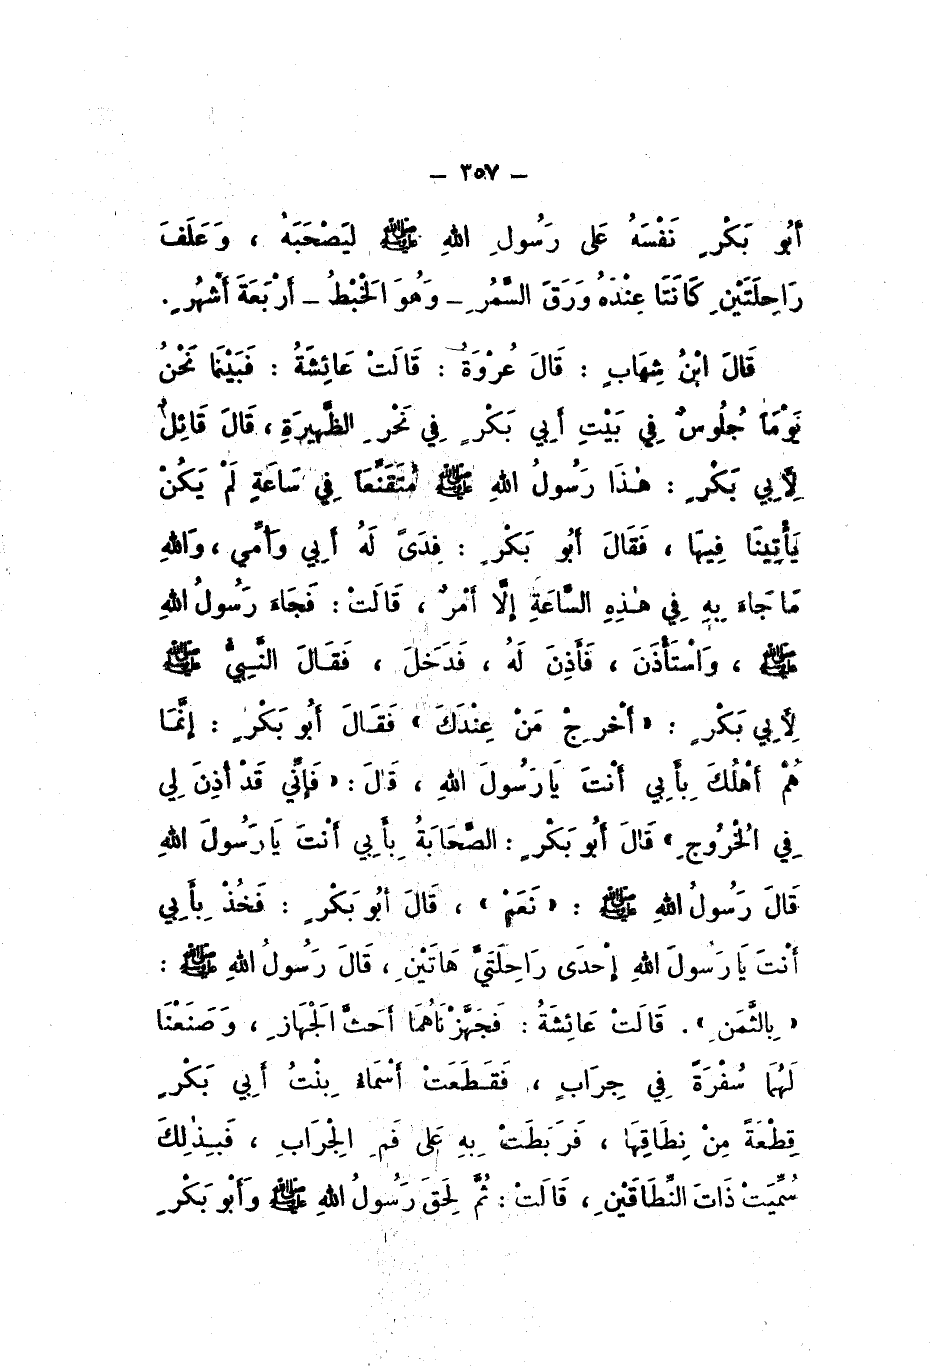 – ٣٥٧ –
أَبُو بَكْرٍ نَفْسَهُ عَلَى رَسُولِ اللهِ ﷺ لِيَصْحَبَهُ ، وَعَلَفَ
رَاحِلَتَيْنِ كَانَتَا عِنْدَهُ وَرَقَ السَّمُرِ – وَهُوَ الْخَبْطُ – أَرْبَعَةَ أَشْهُرٍ .
قَالَ ابْنُ شِهَابٍ : قَالَ عُرْوَةُ : قَالَتْ عَائِشَةُ : فَبَيْنَمَا نَحْنُ
يَوْمًا جُلُوسٌ فِي بَيْتِ أَبِي بَكْرٍ فِي نَحْرِ الظَّهِيرَةِ ، قَالَ قَائِلٌ
لِأَبِي بَكْرٍ : هٰذَا رَسُولُ اللهِ ﷺ مُتَقَنِّعًا فِي سَاعَةٍ لَمْ يَكُنْ
يَأْتِينَا فِيهَا ، فَقَالَ أَبُو بَكْرٍ : فِدًى لَهُ أَبِي وَأُمِّي ، وَاللهِ
مَا جَاءَ بِهِ فِي هٰذِهِ السَّاعَةِ إِلَّا أَمْرٌ ، قَالَتْ : فَجَاءَ رَسُولُ اللهِ
ﷺ ، وَاسْتَأْذَنَ ، فَأَذِنَ لَهُ ، فَدَخَلَ ، فَقَالَ النَّبِيُّ ﷺ
لِأَبِي بَكْرٍ : « أَخْرِجْ مَنْ عِنْدَكَ » فَقَالَ أَبُو بَكْرٍ : إِنَّمَا
هُمْ أَهْلُكَ بِأَبِي أَنْتَ يَا رَسُولَ اللهِ ، قَالَ : « فَإِنِّي قَدْ أُذِنَ لِي
فِي الْخُرُوجِ » قَالَ أَبُو بَكْرٍ : الصَّحَابَةُ بِأَبِي أَنْتَ يَا رَسُولَ اللهِ
قَالَ رَسُولُ اللهِ ﷺ : « نَعَمْ » ، قَالَ أَبُو بَكْرٍ : فَخُذْ بِأَبِي
أَنْتَ يَا رَسُولَ اللهِ إِحْدَى رَاحِلَتَيَّ هَاتَيْنِ ، قَالَ رَسُولُ اللهِ ﷺ :
« بِالثَّمَنِ » . قَالَتْ عَائِشَةُ : فَجَهَّزْنَاهُمَا أَحَثَّ الْجَهَازِ ، وَصَنَعْنَا
لَهُمَا سُفْرَةً فِي جِرَابٍ ، فَقَطَعَتْ أَسْمَاءُ بِنْتُ أَبِي بَكْرٍ
قِطْعَةً مِنْ نِطَاقِهَا ، فَرَبَطَتْ بِهِ عَلَى فَمِ الْجِرَابِ ، فَبِذٰلِكَ
سُمِّيَتْ ذَاتَ النِّطَاقَيْنِ ، قَالَتْ : ثُمَّ لَحِقَ رَسُولُ اللهِ ﷺ وَأَبُو بَكْرٍ